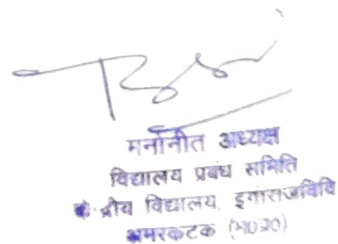 मनोनीत अध्यक्ष
विद्यालय प्रबंध समिति
विद्यालय, इगांराजविवि
अमरकंटक (म0प्र0)